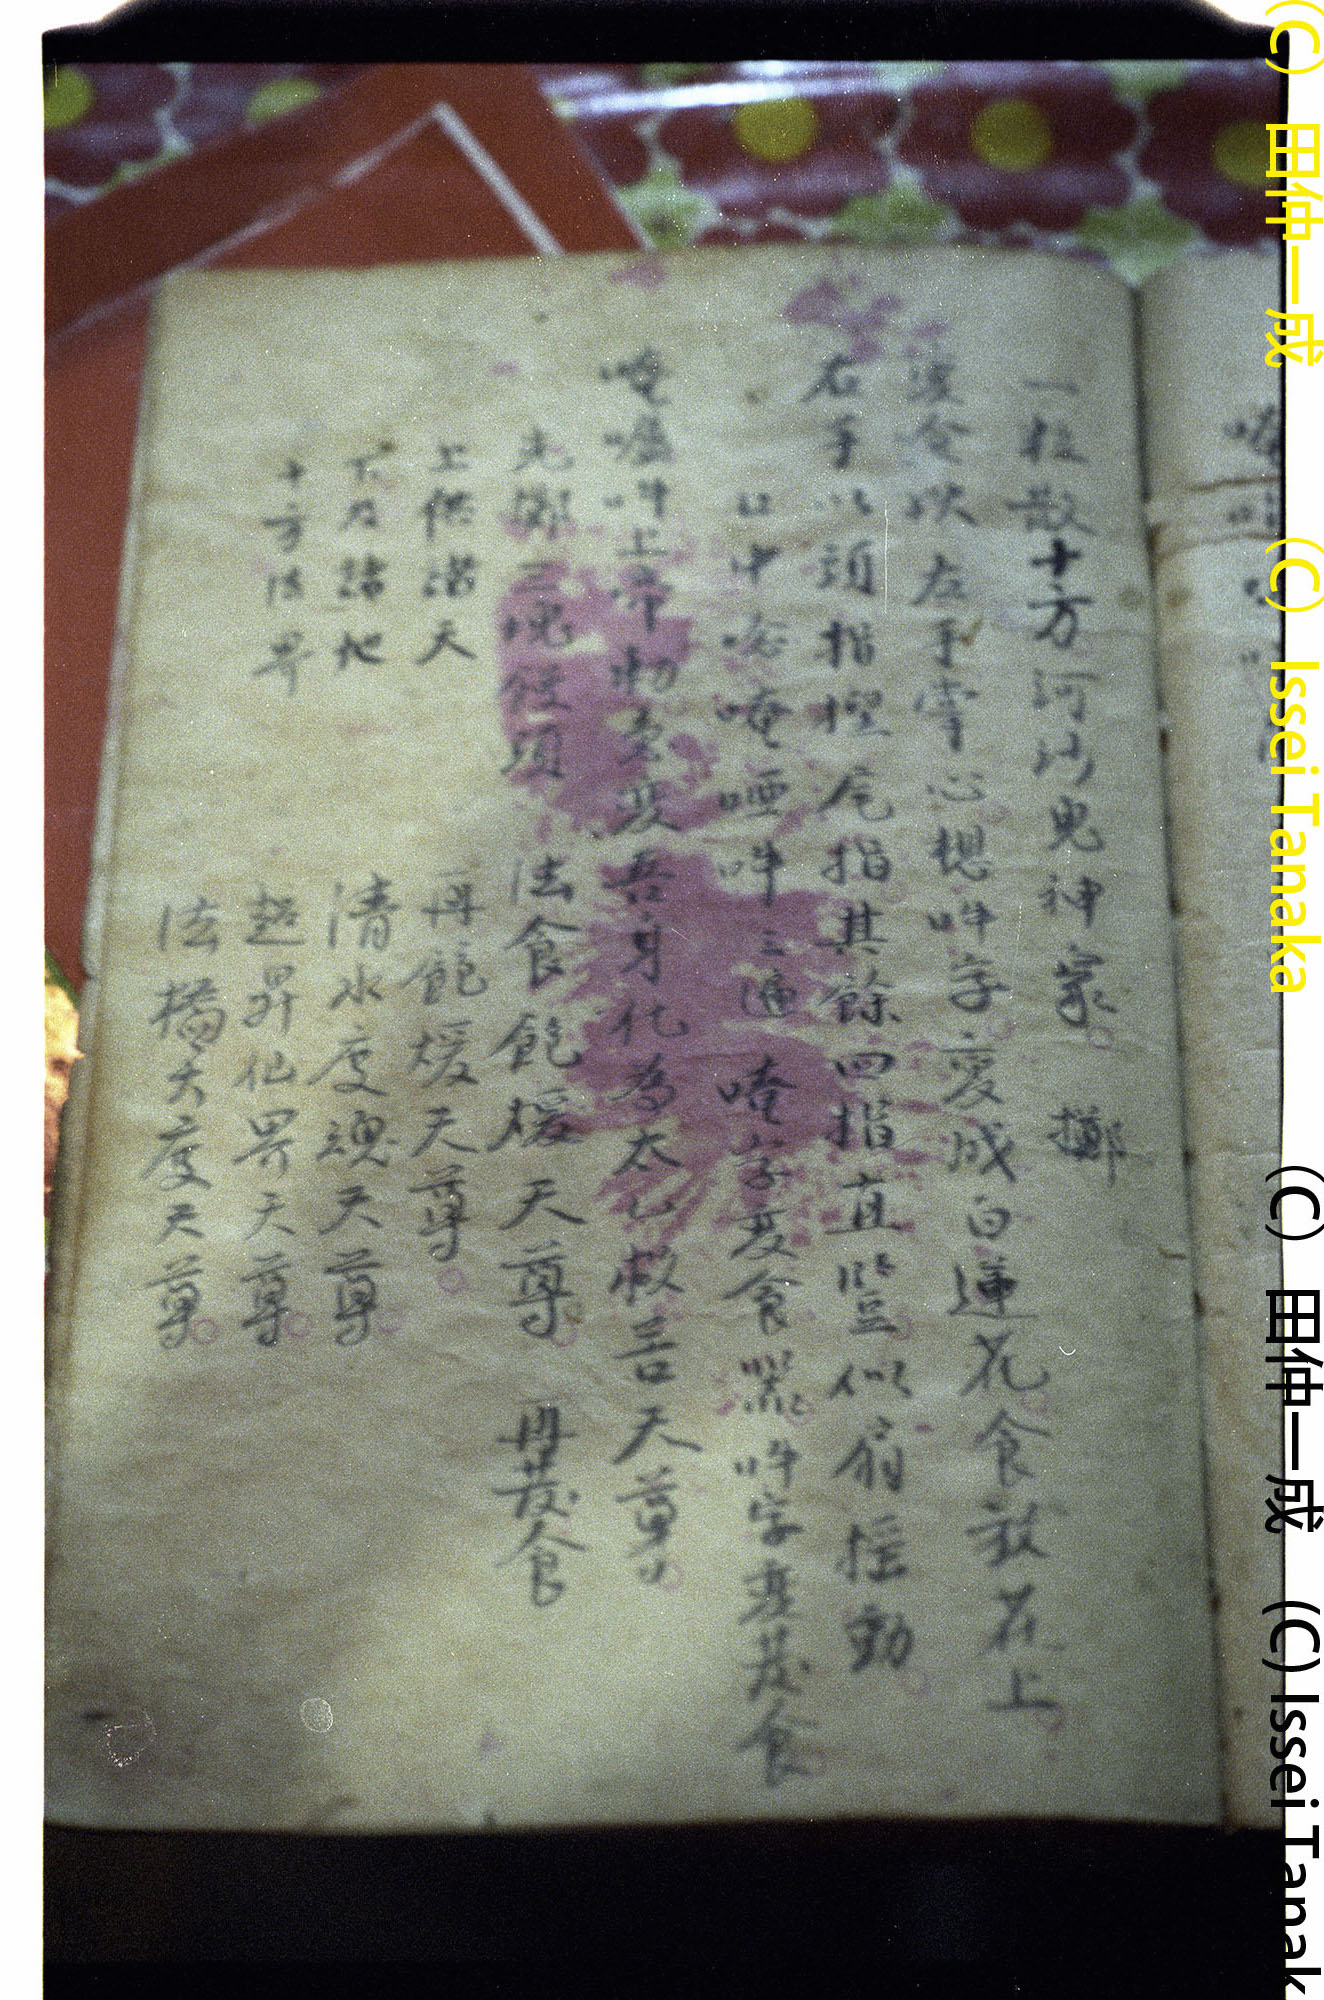 一粒散十方河沙鬼神衆。 擲
次令以左手掌心想吽字変成白蓮花食放花上
右手以頭指捏尾指其餘四指直豎似扇搖動
口中唸唵啞吽三遍 唵字変食 吽字葢茂食
唵 吽上帝勅吾変吾身化為太乙救苦天尊
先擲三塊饅頭 法食飽煖天尊。 再茂食
上供諸天 再飽煖天尊。
下及諸地 清水度魂天尊。
十方法界 超昇仙界天尊。
法橋大度天尊。
(C) 田仲一成 (C) Issei Tanaka
(C) 田仲一成 (C) Issei Tanak